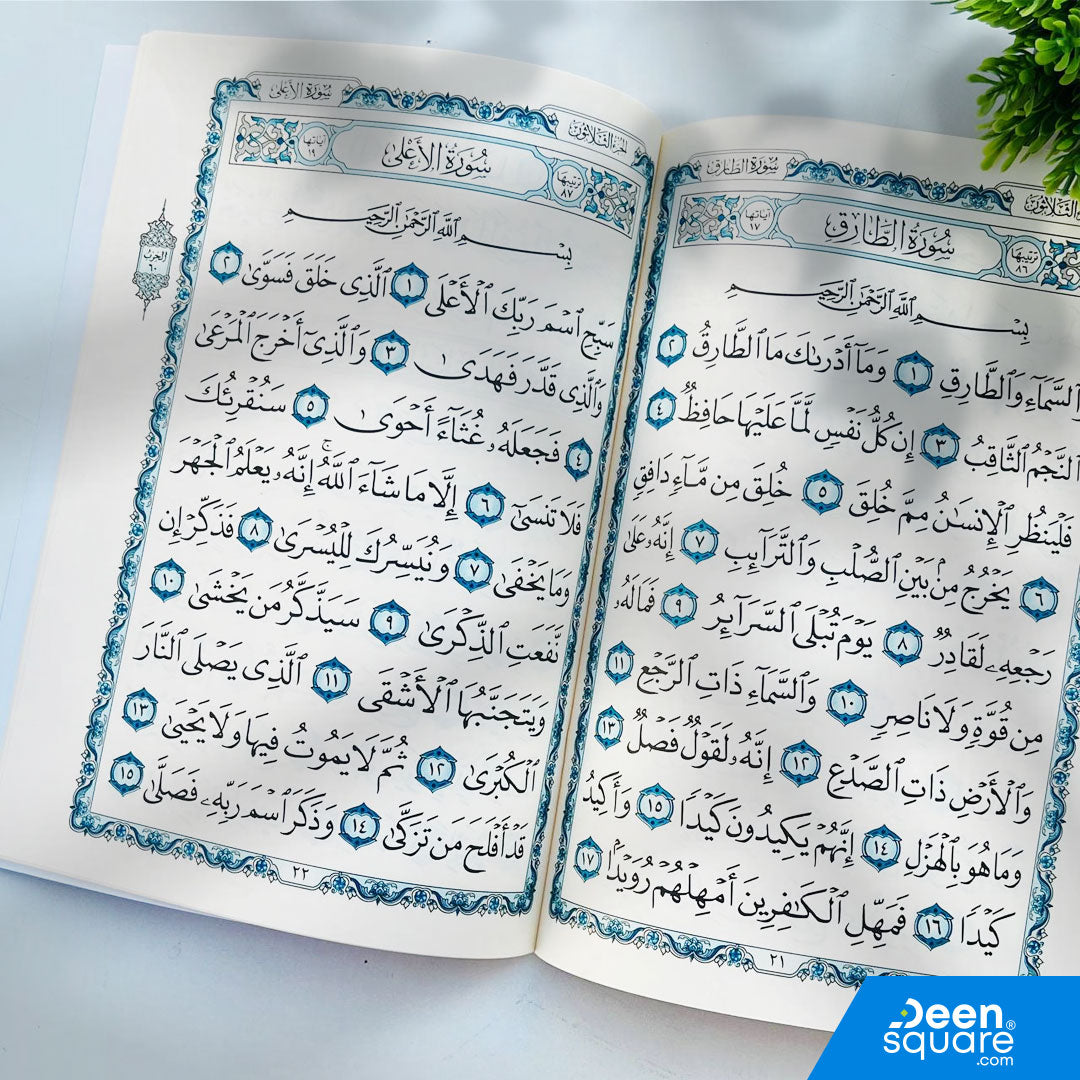 سُورَةُ الطَّارِقِ
الثَّلَاثُونَ
آيَاتُهَا ١٧
سُورَةُ الطَّارِقِ
تَرْتِيبُهَا ٨٦
بِسْمِ ٱللَّهِ ٱلرَّحْمَٰنِ ٱلرَّحِيمِ
ٱلسَّمَآءِ وَٱلطَّارِقِ ١ وَمَآ أَدْرَىٰكَ مَا ٱلطَّارِقُ ٢
ٱلنَّجْمُ ٱلثَّاقِبُ ٣ إِن كُلُّ نَفْسٍ لَّمَّا عَلَيْهَا حَافِظٌ ٤
فَلْيَنظُرِ ٱلْإِنسَٰنُ مِمَّ خُلِقَ ٥ خُلِقَ مِن مَّآءٍ دَافِقٍ
٦ يَخْرُجُ مِنۢ بَيْنِ ٱلصُّلْبِ وَٱلتَّرَآئِبِ ٧ إِنَّهُۥ عَلَىٰ
رَجْعِهِۦ لَقَادِرٌ ٨ يَوْمَ تُبْلَى ٱلسَّرَآئِرُ ٩ فَمَا لَهُۥ
مِن قُوَّةٍ وَلَا نَاصِرٍ ١٠ وَٱلسَّمَآءِ ذَاتِ ٱلرَّجْعِ ١١
وَٱلْأَرْضِ ذَاتِ ٱلصَّدْعِ ١٢ إِنَّهُۥ لَقَوْلٌ فَصْلٌ ١٣
وَمَا هُوَ بِٱلْهَزْلِ ١٤ إِنَّهُمْ يَكِيدُونَ كَيْدًا ١٥ وَأَكِيدُ
كَيْدًا ١٦ فَمَهِّلِ ٱلْكَٰفِرِينَ أَمْهِلْهُمْ رُوَيْدًۢا ١٧
٢١
سُورَةُ الأَعْلَىٰ
الجُزْءُ الثَّلَاثُونَ
آيَاتُهَا ١٩
سُورَةُ الأَعْلَىٰ
تَرْتِيبُهَا ٨٧
الحِزْب ٦٠
بِسْمِ ٱللَّهِ ٱلرَّحْمَٰنِ ٱلرَّحِيمِ
سَبِّحِ ٱسْمَ رَبِّكَ ٱلْأَعْلَى ١ ٱلَّذِى خَلَقَ فَسَوَّىٰ ٢
وَٱلَّذِى قَدَّرَ فَهَدَىٰ ٣ وَٱلَّذِىٓ أَخْرَجَ ٱلْمَرْعَىٰ
٤ فَجَعَلَهُۥ غُثَآءً أَحْوَىٰ ٥ سَنُقْرِئُكَ
فَلَا تَنسَىٰٓ ٦ إِلَّا مَا شَآءَ ٱللَّهُ ۚ إِنَّهُۥ يَعْلَمُ ٱلْجَهْرَ
وَمَا يَخْفَىٰ ٧ وَنُيَسِّرُكَ لِلْيُسْرَىٰ ٨ فَذَكِّرْ إِن
نَّفَعَتِ ٱلذِّكْرَىٰ ٩ سَيَذَّكَّرُ مَن يَخْشَىٰ ١٠
وَيَتَجَنَّبُهَا ٱلْأَشْقَى ١١ ٱلَّذِى يَصْلَى ٱلنَّارَ
ٱلْكُبْرَىٰ ١٢ ثُمَّ لَا يَمُوتُ فِيهَا وَلَا يَحْيَىٰ ١٣
قَدْ أَفْلَحَ مَن تَزَكَّىٰ ١٤ وَذَكَرَ ٱسْمَ رَبِّهِۦ فَصَلَّىٰ ١٥
٢٢
Deen
square®
.com